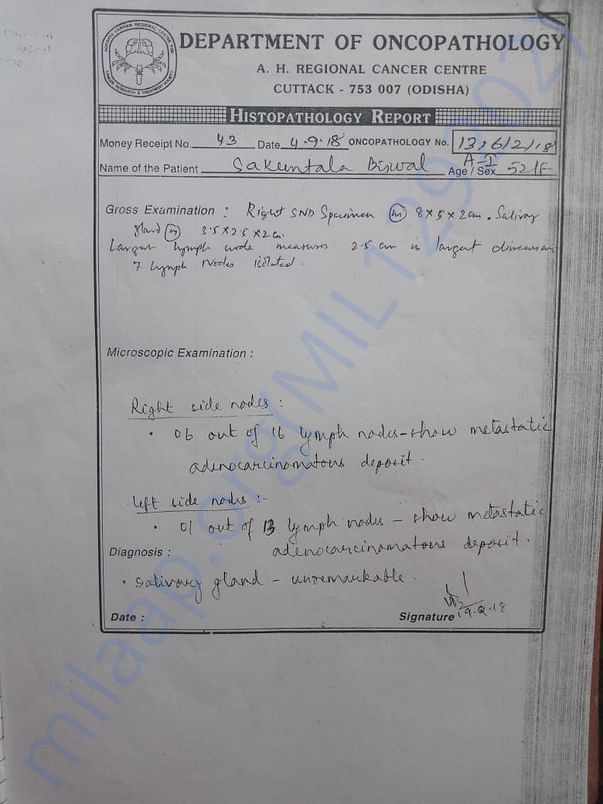 DEPARTMENT OF ONCOPATHOLOGY
A. H. REGIONAL CANCER CENTRE
CUTTACK - 753 007 (ODISHA)
HISTOPATHOLOGY REPORT
Money Receipt No. 43 Date 4.9.18 ONCOPATHOLOGY No. 13,6/2/18
Name of the Patient Sakuntala Biswal Age / Sex 52/F
A-I
Gross Examination : Right SND Specimen (m) 8×5×2cm. Salivary
gland (m) 3.5×2.5×2cm.
Largest lymph node measures 2.5 cm in largest dimension
7 lymph nodes isolated.
Microscopic Examination :
Right side nodes :
• 06 out of 16 lymph nodes - show metastatic
adenocarcinomatous deposit.
Left side nodes :-
• 01 out of 13 lymph nodes - show metastatic
adenocarcinomatous deposit.
Diagnosis :
• salivary gland - unremarkable.
Date :
Signature
milaap.org(MIL129202